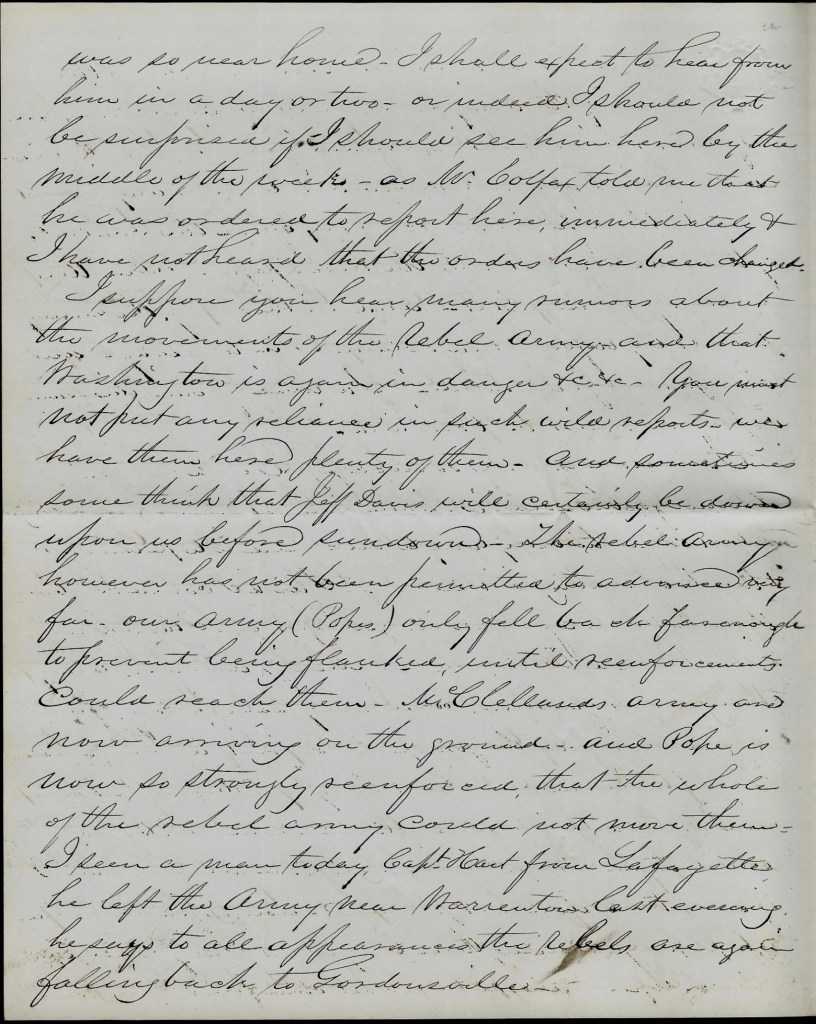 was so near home - I shall expect to hear from
him in a day or two - or indeed I should not
be surprised if I should see him here by the
middle of the week - as Mr. Colfax told me that
he was ordered to report here, immediately &
I have not heard that the orders have been changed.
I suppose you hear many rumors about
the movements of the rebel army and that
Washington is again in danger &c &c - You must
not put any reliance in such wild reports - we
have them here, plenty of them - and sometimes
some think that Jeff Davis will certainly be down
upon us before sundown - The rebel army
however has not been permitted to advance very
far - our army (Popes) only fell back far enough
to prevent being flanked, until reenforcements
could reach them - McClellands army are
now arriving on the ground - and Pope is
now so strongly reenforced, that the whole
of the rebel army could not move them -
I seen a man today, Capt. Hart from Lafayette,
he left the Army near Warrenton last evening.
he says to all appearances the rebels are again
falling back to Gordonsville -